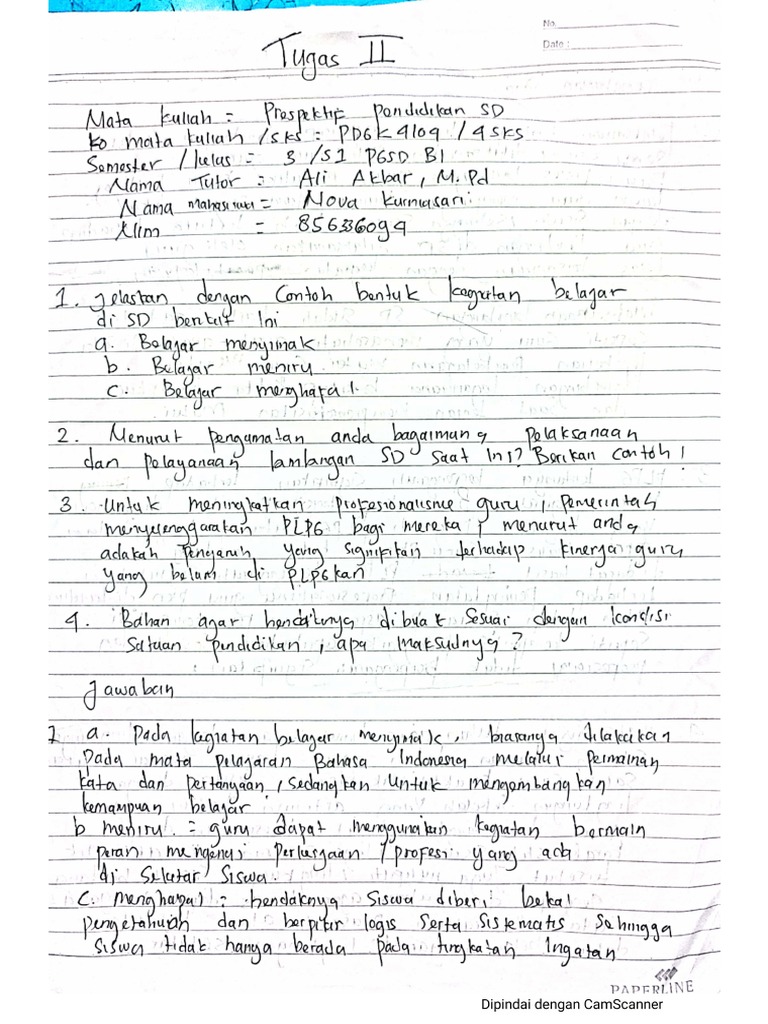 No.
Date :
Tugas II
Mata kuliah = Prospektif pendidikan SD
ko mata kuliah / sks = PDGK4109 / 4 SKS
Semester / kelas = 3 / S1 PGSD BI
Nama Tutor = Ali Akbar, M.Pd
Nama mahasiswa = Nova kurniasari
NIm = 856336094
1. jelaskan dengan Contoh bentuk kegiatan belajar
di SD berikut Ini
a. Belajar menyimak
b. Belajar meniru
c. Belajar menghafal.
2. Menurut pengamatan anda bagaimana pelaksanaan
dan pelayanaan lambangan SD saat Ini? Berikan Contoh!
3. Untuk meningkatkan profesionalisme guru, pemerintah
menyelenggarakan PLPG bagi mereka, menurut anda
adakah pengaruh yang signifikan terhadap kinerja guru
yang belum di PLPGkan
4. Bahan ajar hendaknya dibuat Sesuai dengan kondisi
Satuan pendidikan, apa maksudnya?
Jawaban
1 a. Pada kagiatan belajar menyimak, biasanya dilakukan
pada mata pelajaran Bahasa Indonesia melalui permainan
kata dan pertanyaan, sedangkan Untuk mengembangkan
kemampuan belajar
b meniru = guru dapat menggunakan kegiatan bermain
peran mengenai perkerjaan / profesi yang ada
di Sekitar Siswa.
C. menghapal = hendaknya Siswa diberi bekal
pengetahuan dan berpikir logis Serta Sistematis Sehingga
siswa tidak hanya berada pada tingkatan Ingatan
PAPERLINE
Dipindai dengan CamScanner